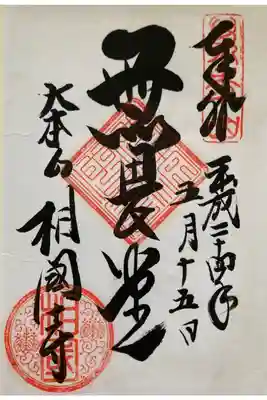 奉拝
平成二十四年
五月十五日
無畏堂
大本山 相國寺